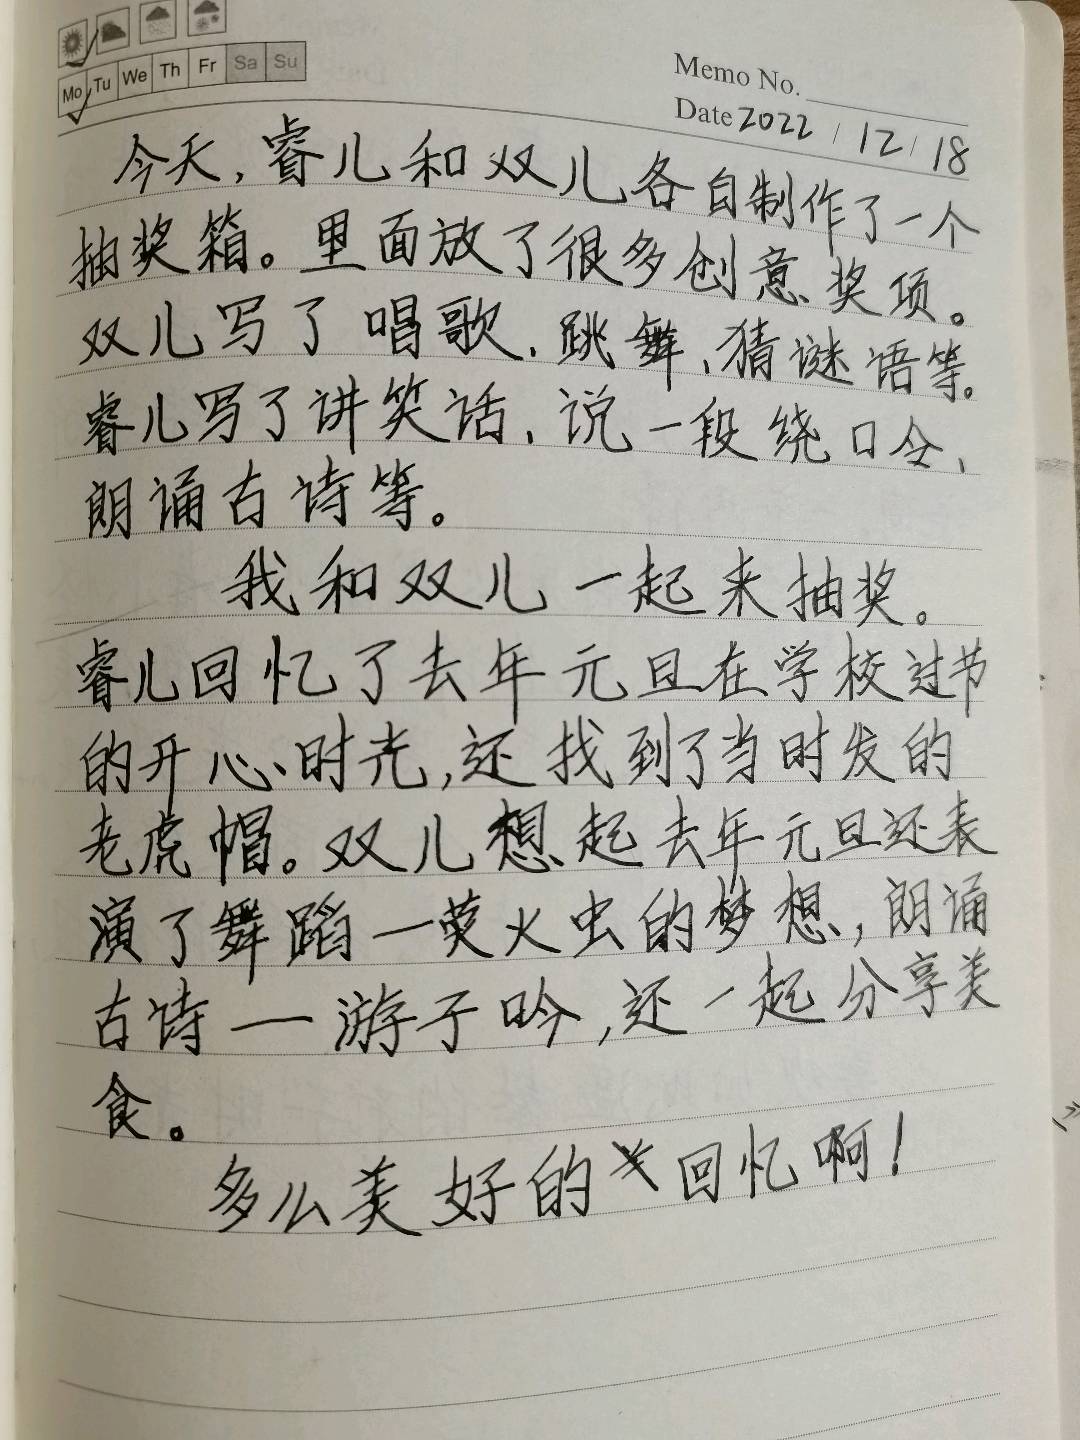 Mo Tu We Th Fr Sa Su
Memo No.
Date 2022 / 12 / 18
今天,睿儿和双儿各自制作了一个
抽奖箱。里面放了很多创意奖项。
双儿写了唱歌、跳舞、猜谜语等。
睿儿写了讲笑话、说一段绕口令、
朗诵古诗等。
我和双儿一起来抽奖。
睿儿回忆了去年元旦在学校过节
的开心时光,还找到了当时发的
老虎帽。双儿想起去年元旦还表
演了舞蹈一荧火虫的梦想,朗诵
古诗一游子吟,还一起分享美
食。
多么美好的回忆啊!